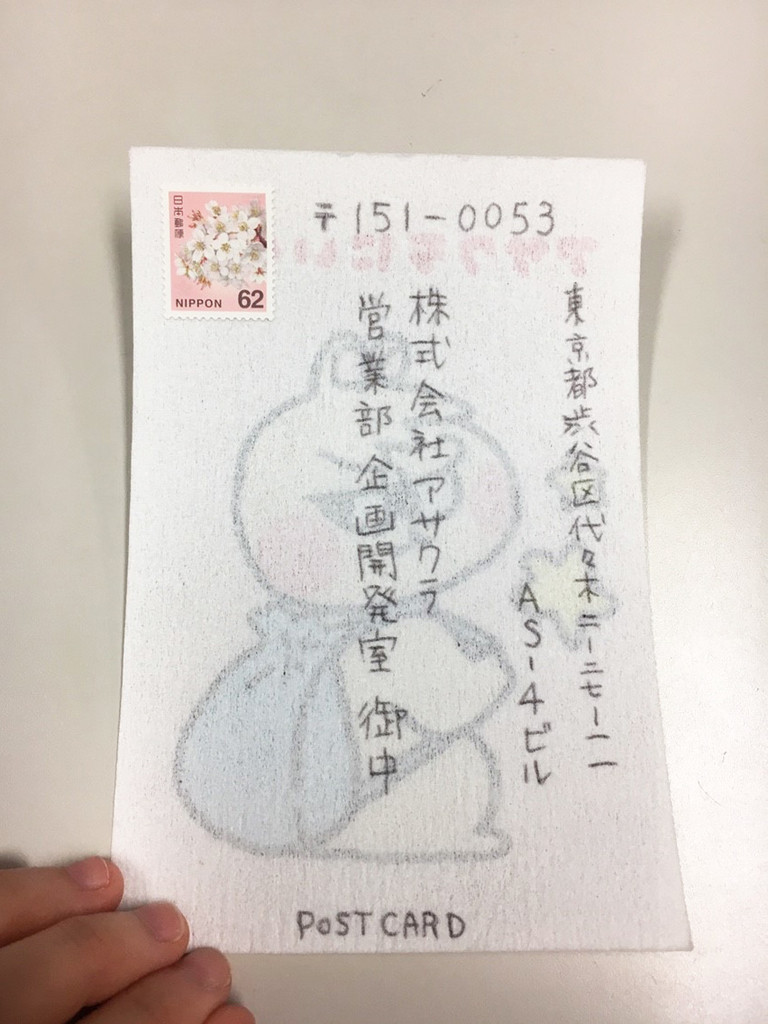 日本郵便
NIPPON 62
〒151-0053
東京都渋谷区代々木二ー二七ー一一
AS-4ビル
株式会社アサクラ
営業部 企画開発室 御中
POSTCARD